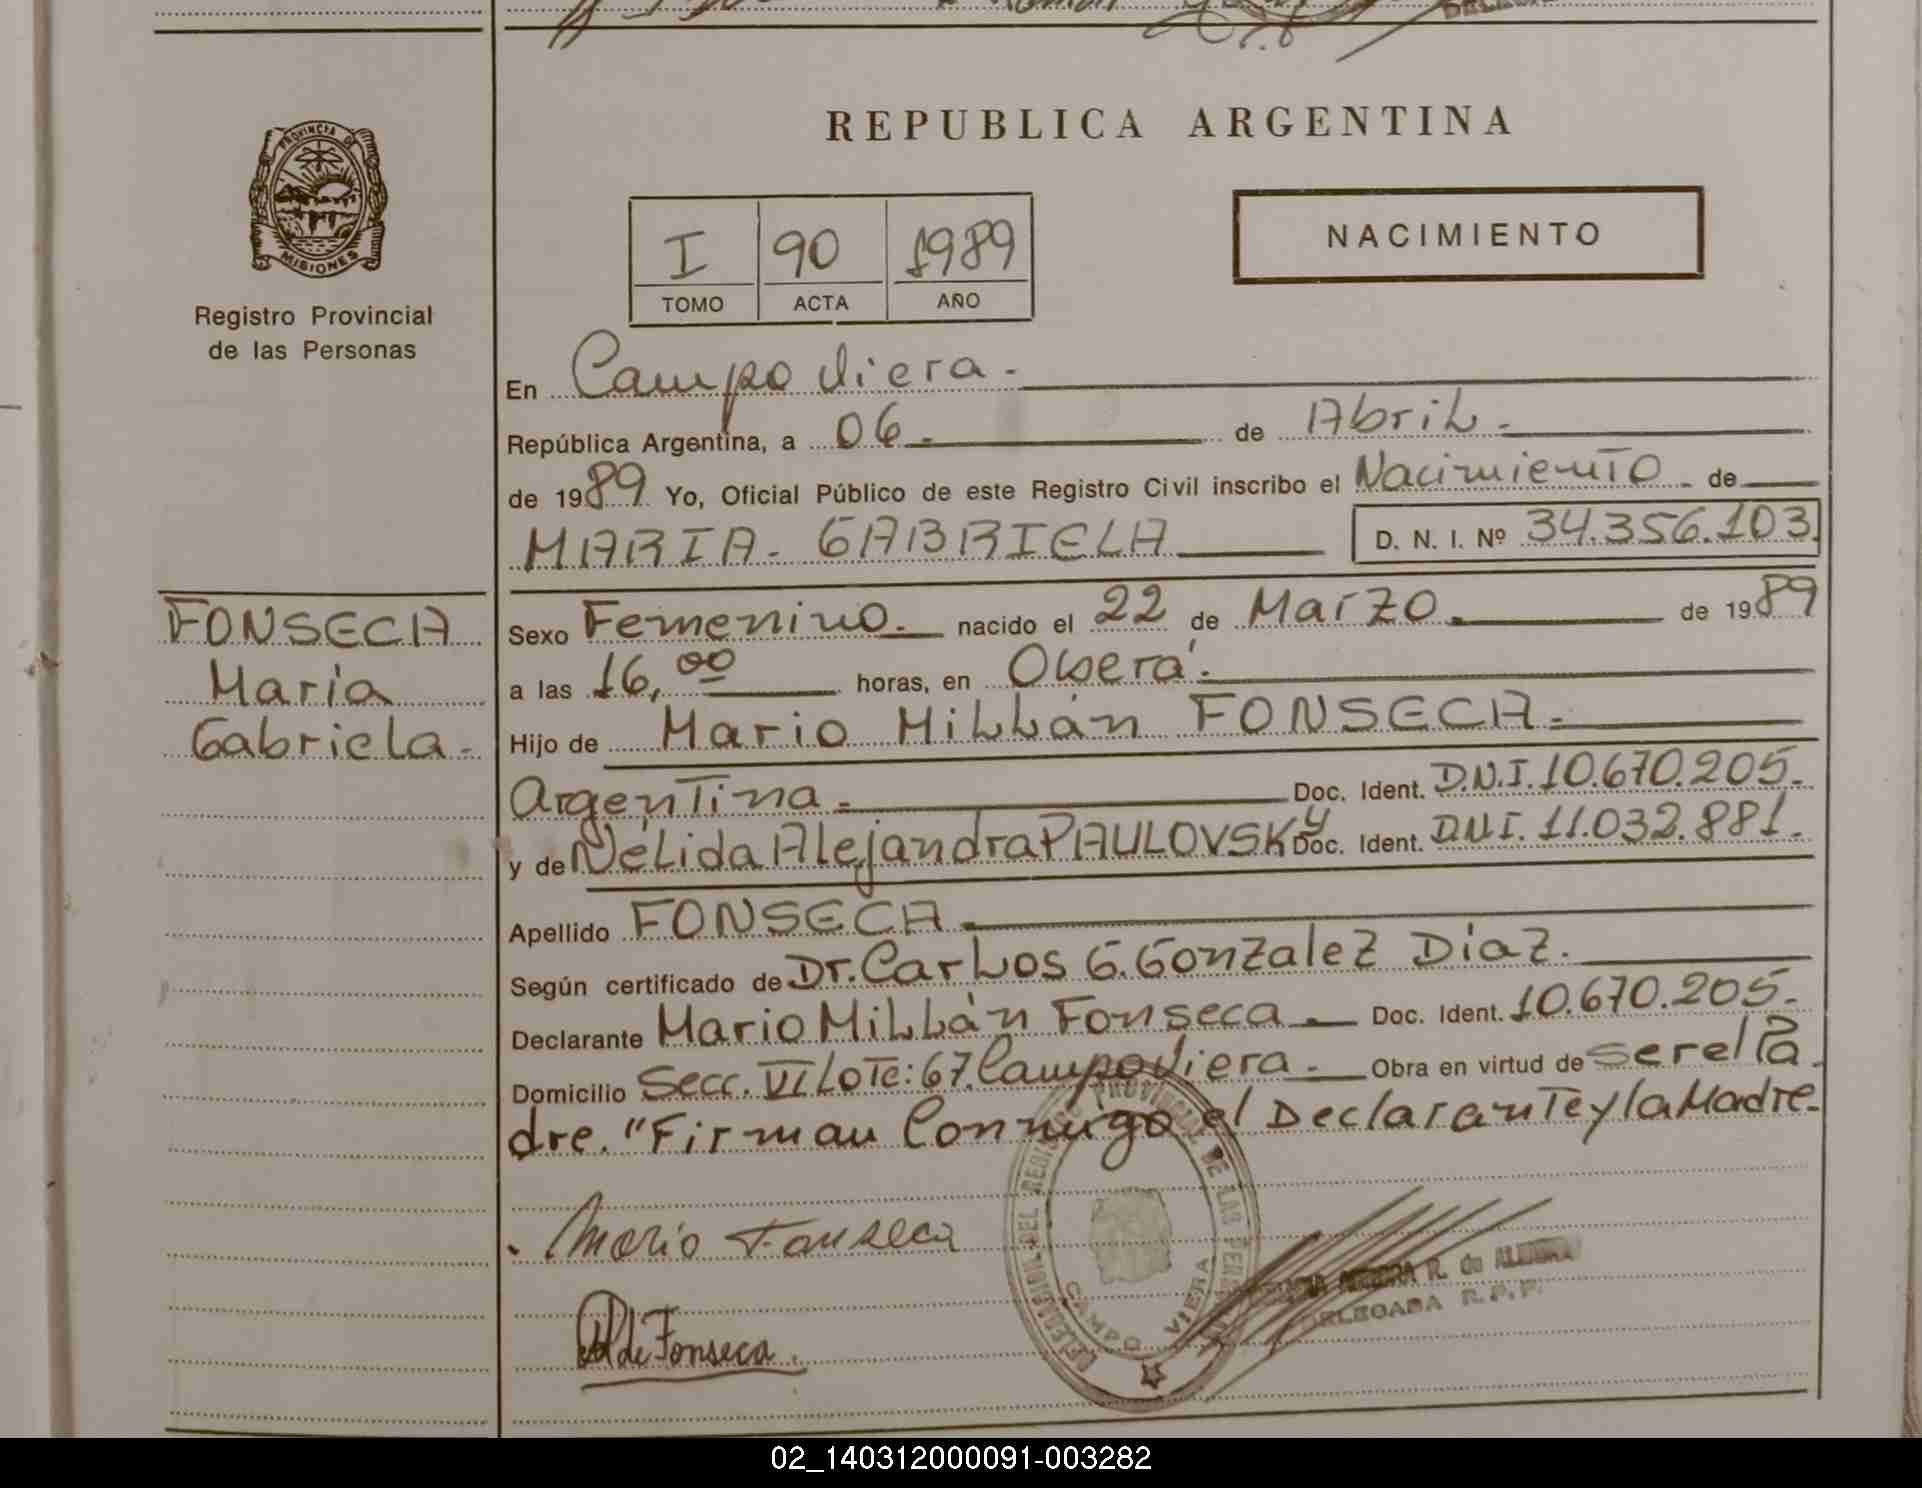 REPUBLICA ARGENTINA
PROVINCIA DE
MISIONES
Registro Provincial
de las Personas
I 90 1989
TOMO ACTA AÑO
NACIMIENTO
En Campo Viera.-
República Argentina, a 06.- de Abril.-
de 1989 Yo, Oficial Público de este Registro Civil inscribo el Nacimiento - de
MARIA - GABRIELA D. N. I. Nº 34.356.103.
FONSECA
Maria
Gabriela.-
Sexo Femenino.- nacido el 22 de Marzo.- de 1989
a las 16,00 horas, en Oberá.-
Hijo de Mario Millán FONSECA.-
Argentina.- Doc. Ident. D.N.I. 10.670.205.-
y de Nélida Alejandra PAULOVSKY Doc. Ident. D.N.I. 11.032.881.-
Apellido FONSECA.-
Según certificado de Dr. Carlos G. Gonzalez Diaz.-
Declarante Mario Millán Fonseca.- Doc. Ident. 10.670.205.-
Domicilio Secc. VI Lote: 67. Campo Viera.- Obra en virtud de ser el Pa
dre. "Firman Conmigo el Declarante y la Madre.-
Mario Fonseca
de Fonseca.
DELEGACION DEL REGISTRO PROVINCIAL DE LAS
CAMPO VIERA
R. de
DELEGADA R.P.P.
02_140312000091-003282